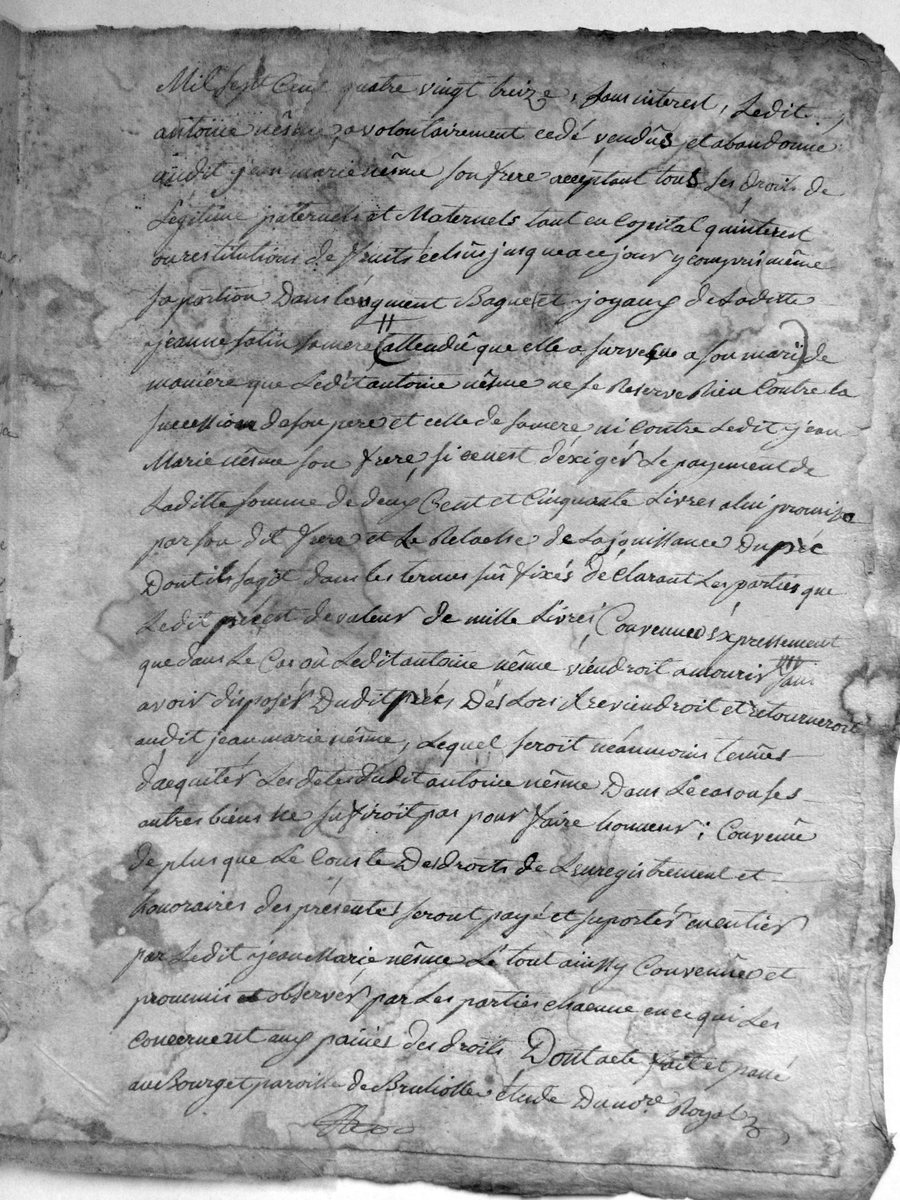 Mil Sept Cent quatre vingt treize, sans interest, Ledit
antoine nesme, a volontairement cedé vendûs et abandonne
audit jean marie nesme son frere acceptant tous Ses droits de
Légitime paternels et Maternels tant en Capital qu'interest
ou restitutions de fruits échus jusqu'a ce jour y compris même
sa portion Dans Laugment Bagues et joyaux de Laditte
jeanne Solin sa mere (attendû que elle a survecue a son mari) de
maniere que Ledit antoine nesme ne se Reserve Rien Contre la
succession de son pere et celle de sa mere ni Contre Ledit jean
Marie nesme son frere, si ce nest d'éxigér Le payement de
Laditte somme de deux Cent et Cinquante Livres a lui promise
par son dit frere et Le Relache de La jouissance Du pré
Dont il sagit dans les termes sus fixés déClarant Les parties que
Ledit pré est de valeur de mille Livres, Convenne éxpressement
que dans Le Cas où Ledit antoine nesme viendroit a mourir sans
avoir disposér Dudit pré Dès Lors il reviendroit et retourneroit
audit jean marie nesme, Lequel seroit néanmoins tennûs
d'acquitér Les dètes dudit antoine nesme Dans Le cas ou ses
autres biens ne sufiroit pas pour faire honneur; Convenû
de plus que Le Couste Des droits de Lenregistrement et
honoraires des présentes seront payé et suportés en entier
par Ledit jean Marie nesme Le tout ainssy Convennûe et
prommis et observér par Les parties chacune en ce qui Les
concernent aux painès des droits Dont acte fait et passé
au Bourg et paroisse de étude Du nore Royal